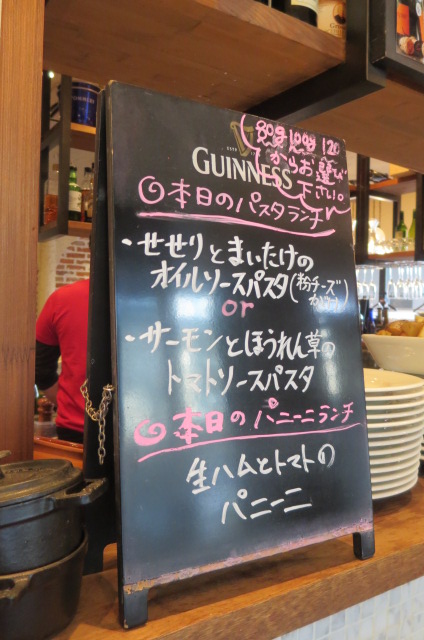 80g 100g 120
からお選び
下さい。
ESTD
GUINNESS
本日のパスタランチ
・せせりとまいたけの
オイルソースパスタ(粉チーズ
or
・サーモンとほうれん草の
トマトソースパスタ
本日のパニーニランチ
生ハムとトマトの
パニーニ